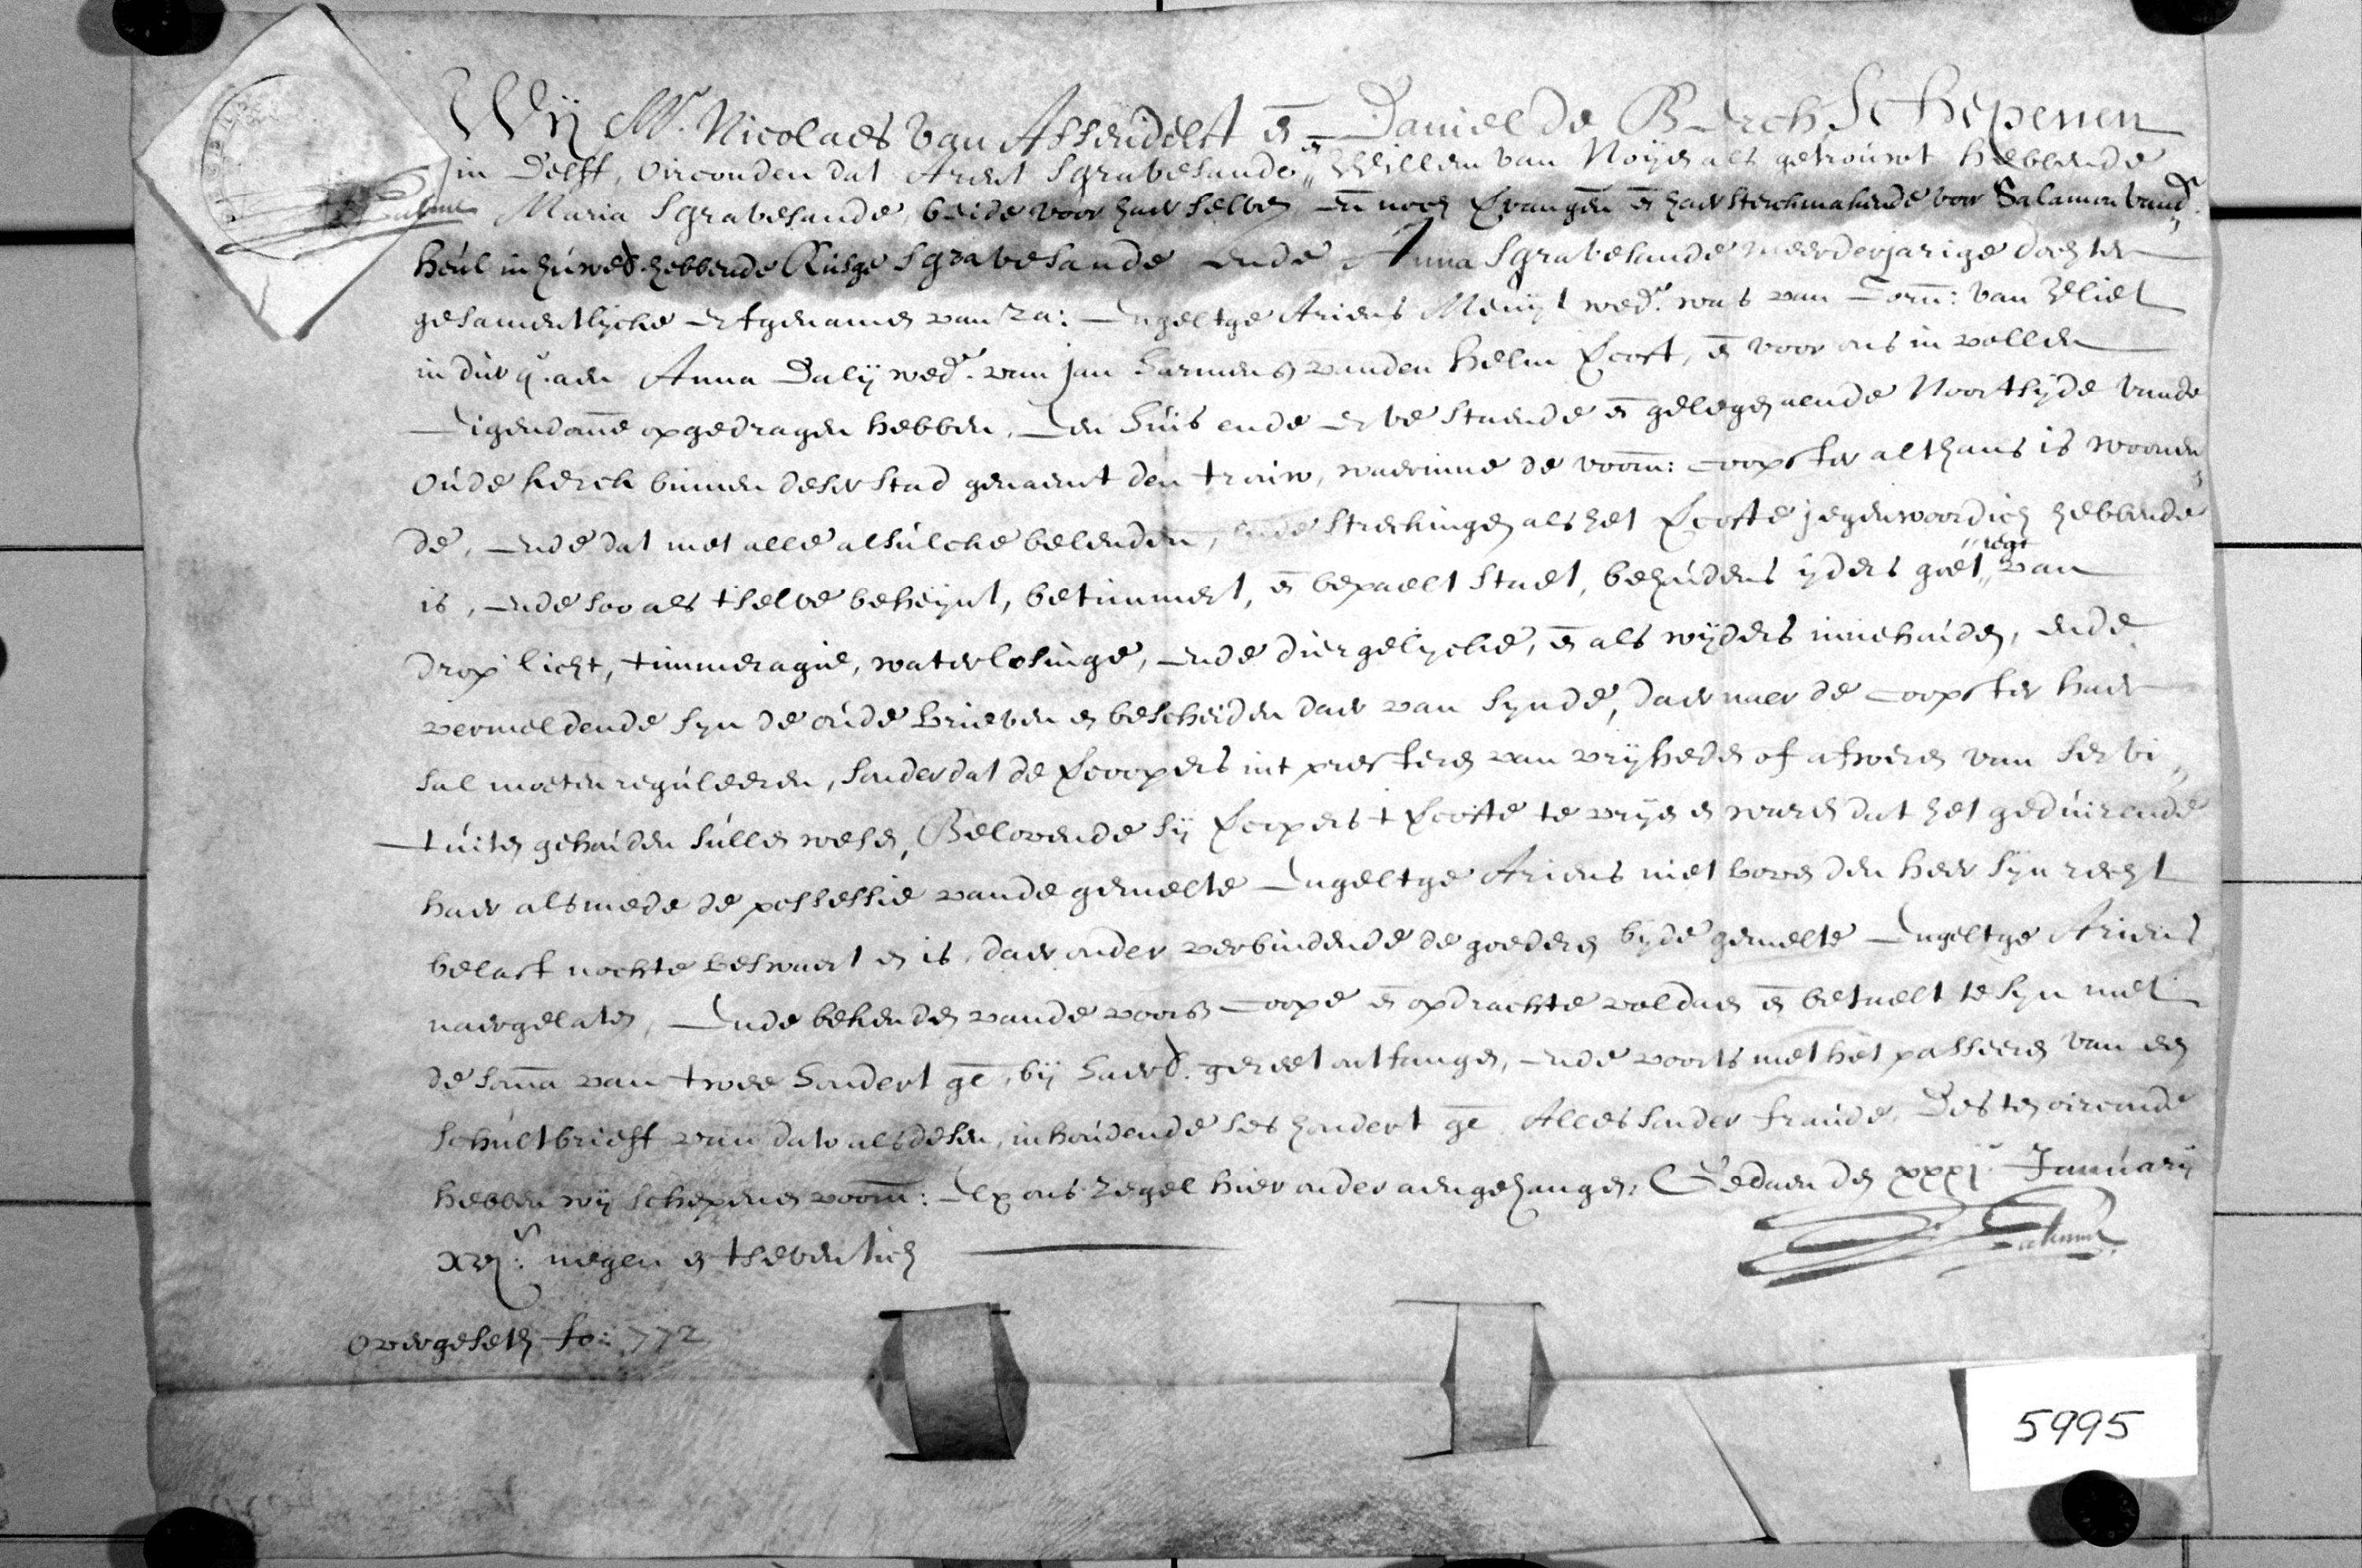 Wij Mr. Nicolaes van Assendelft en Daniel de Berch Schepenen
in Delff, oirconden dat Arent Sgravesande en Willem van Noijen als getrouwt hebbende
Maria Sgravesande, beide voor haer selven en noch vervangen en haer sterckmakende voor Salamon vand.
heul in huwel. hebbende Sgravesande ende Anna Sgravesande meerderjarige dochter
gesamentlijcke erfgenamen van za: Engeltge Ariens wedr. was van Corn: van Vliet
in dier q. aen Anna Dalij wede. van Jan Harmens vanden Helm vercoft, en voor ons in vollen
Eigendomme opgedragen hebben, Een huis ende erve staende en gelegen aende Noortsijde vande
Oude kerck binnen deser stad genaemt den trouw, waerinne de voorn: coopster althans is woonen
de, ende dat met alle alsulcke belenden, ende streckingen als het vercofte jegenwoordich hebbende
is, ende soo als tselve beheijnt, betimmert, en bepaelt staet, behoudens ijders goet regt van
drop licht, timmeragie, waterlosinge, ende diergelijcke, en als wijders innehouden, ende
vermeldende sijn de oude brieven en bescheiden daer van sijnde, daer naer de coopster haer
sal moeten reguleeren, sonder dat de vercoopers int presteren van vrijheden of afweren van servi
tuiten gehouden sullen wesen, Belovende sij vercopers t vercofte te vrijen en waren dat het geduirende
haer alsmede de possessie vande gemelte Engeltge Ariens niet boven den heer sijn recht
belast nochte beswaert en is, daer onder verbindende de goederen bijde gemelte Engeltge Ariens
naergelaten, Ende bekenden vande voors coope en opdrachte voldaen en betaelt te sijn met
de soma van twee hondert ge. bij haerl. gereet ontfangen, ende voorts met het passeren van een
schultbrieff van dato als desen, inhoudende ses hondert ge. Alles sonder fraude. Des ten oirconde
hebben wij schepenen voorn: elx ons zegel hier onder aengehangen. Gedaen den xxxj. Januarij
xvjc. negen en tseventich
overgeset fo: 772
5995